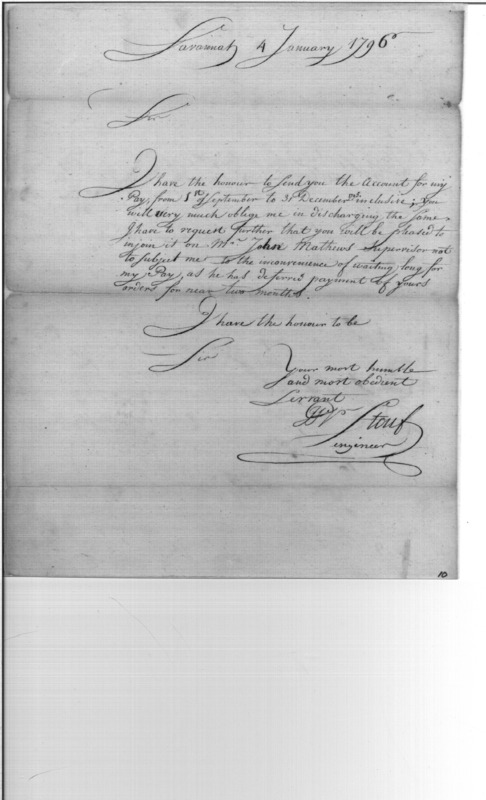 Savannah 4 January 1796
Sir
I have the honour to send you the Account for my
Pay, from 1st September to 31st December inclusive; you
will very much oblige me in discharging the same.
I have to request further that you will be pleased to
injoin it on Mr. John Mathews Supervisor not
to subject me to the inconvenience of waiting long for
my Pay, as he has deferred payment of yours
orders for near two months.
I have the honour to be
Sir
Your most humble
and most obedient
Servant
Stouf
engineer
10